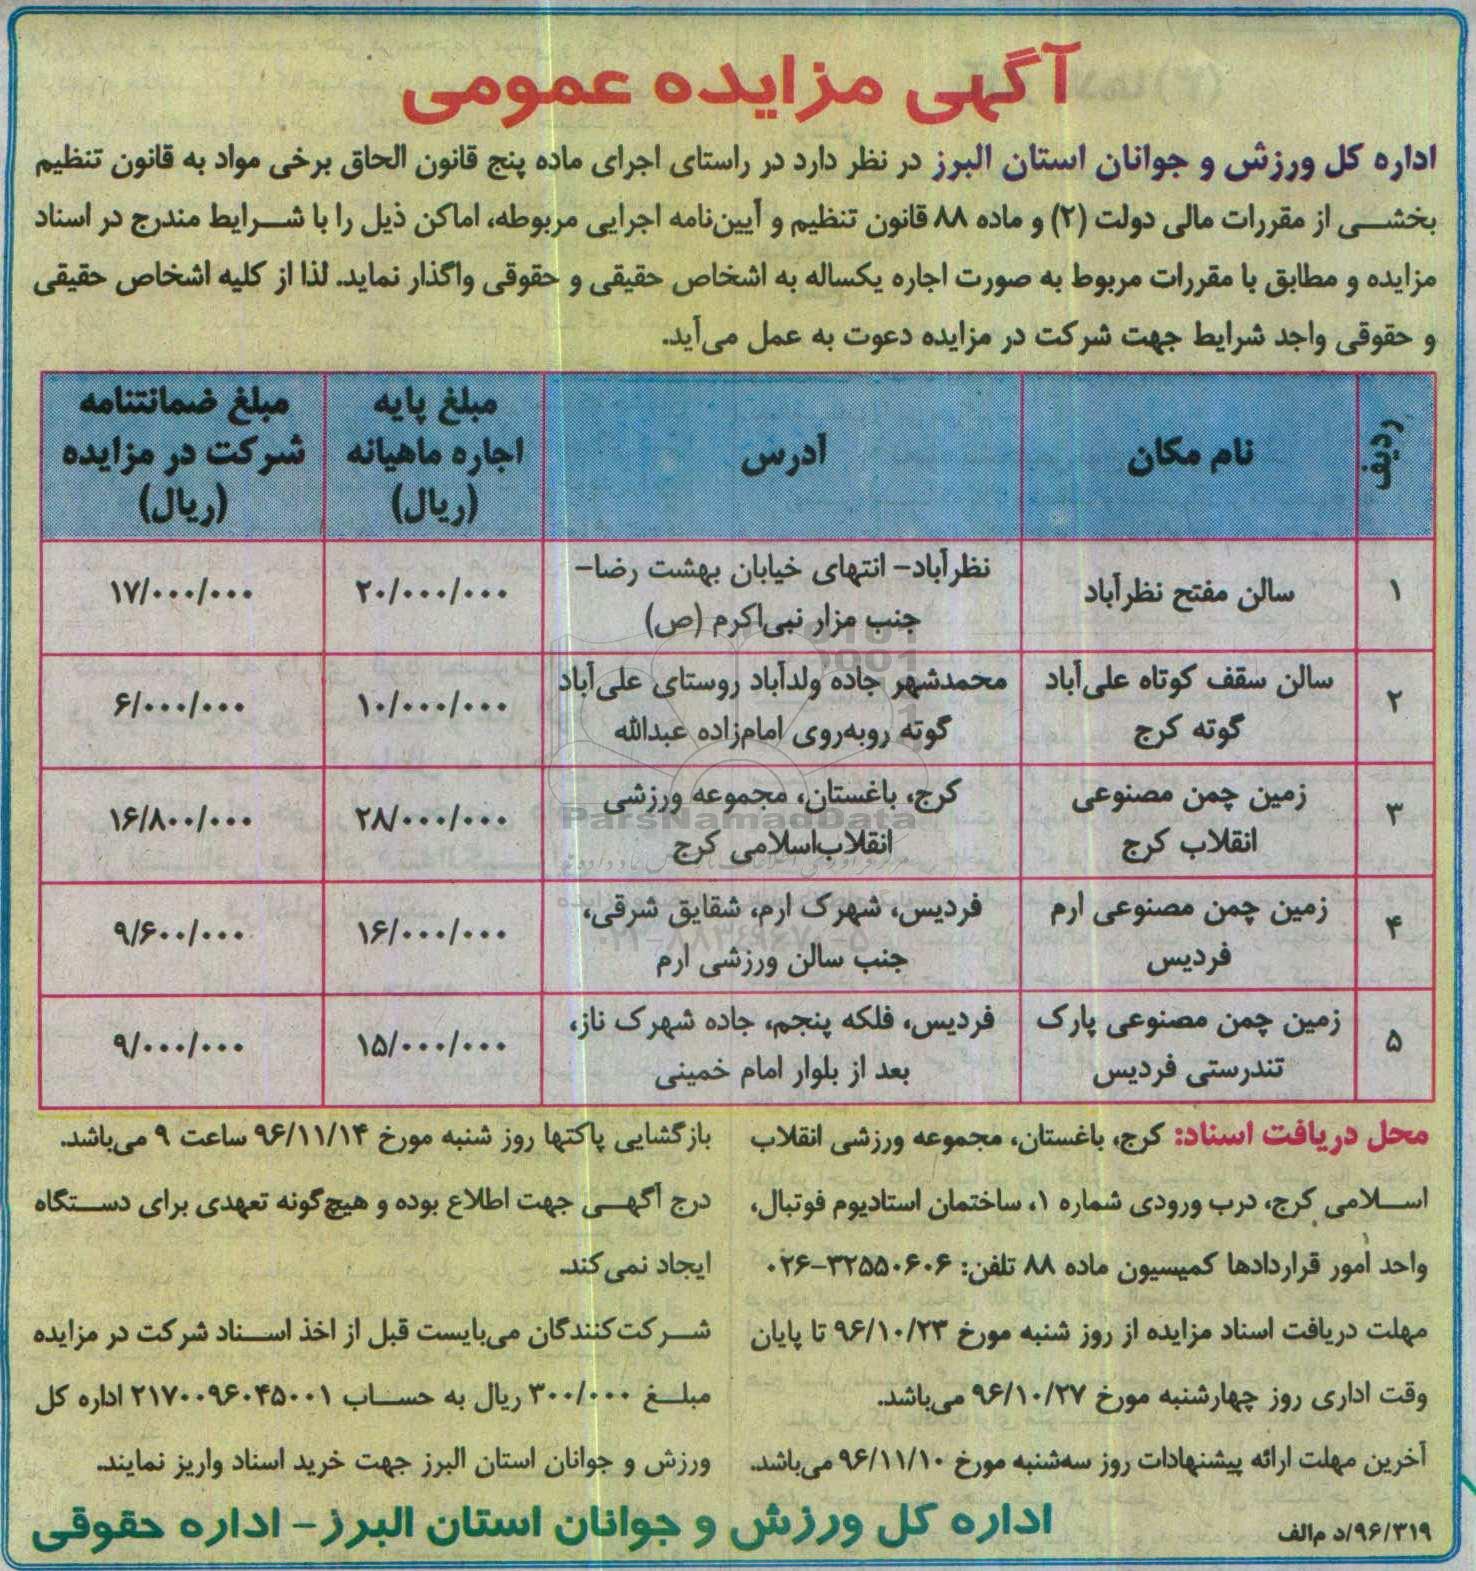 آگهی مزایده عمومی
اداره کل ورزش و جوانان استان البرز در نظر دارد در راستای اجرای ماده پنج قانون الحاق برخی مواد به قانون تنظیم
بخشی از مقررات مالی دولت (۲) و ماده ۸۸ قانون تنظیم و آیین‌نامه اجرایی مربوطه، اماکن ذیل را با شرایط مندرج در اسناد
مزایده و مطابق با مقررات مربوط به صورت اجاره یکساله به اشخاص حقیقی و حقوقی واگذار نماید. لذا از کلیه اشخاص حقیقی
و حقوقی واجد شرایط جهت شرکت در مزایده دعوت به عمل می‌آید.
ردیف
نام مکان
آدرس
مبلغ پایه
اجاره ماهیانه
(ریال)
مبلغ ضمانتنامه
شرکت در مزایده
(ریال)
۱
سالن مفتح نظرآباد
نظرآباد- انتهای خیابان بهشت رضا-
جنب مزار نبی‌اکرم (ص)
۲۰/۰۰۰/۰۰۰
۱۷/۰۰۰/۰۰۰
۲
سالن سقف کوتاه علی‌آباد
گوته کرج
محمدشهر جاده ولدآباد روستای علی‌آباد
گوته روبه‌روی امام‌زاده عبدالله
۱۰/۰۰۰/۰۰۰
۶/۰۰۰/۰۰۰
۳
زمین چمن مصنوعی
انقلاب کرج
کرج، باغستان، مجموعه ورزشی
انقلاب‌اسلامی کرج
۲۸/۰۰۰/۰۰۰
۱۶/۸۰۰/۰۰۰
۴
زمین چمن مصنوعی ارم
فردیس
فردیس، شهرک ارم، شقایق شرقی،
جنب سالن ورزشی ارم
۱۶/۰۰۰/۰۰۰
۹/۶۰۰/۰۰۰
۵
زمین چمن مصنوعی پارک
تندرستی فردیس
فردیس، فلکه پنجم، جاده شهرک ناز،
بعد از بلوار امام خمینی
۱۵/۰۰۰/۰۰۰
۹/۰۰۰/۰۰۰
ParsNamadData
محل دریافت اسناد: کرج، باغستان، مجموعه ورزشی انقلاب
اسلامی کرج، درب ورودی شماره ۱، ساختمان استادیوم فوتبال،
واحد امور قراردادها کمیسیون ماده ۸۸ تلفن: ۳۲۵۵۰۶۰۶-۰۲۶
مهلت دریافت اسناد مزایده از روز شنبه مورخ ۹۶/۱۰/۲۳ تا پایان
وقت اداری روز چهارشنبه مورخ ۹۶/۱۰/۲۷ می‌باشد.
آخرین مهلت ارائه پیشنهادات روز سه‌شنبه مورخ ۹۶/۱۱/۱۰ می‌باشد.
بازگشایی پاکتها روز شنبه مورخ ۹۶/۱۱/۱۴ ساعت ۹ می‌باشد.
درج آگهی جهت اطلاع بوده و هیچ‌گونه تعهدی برای دستگاه
ایجاد نمی‌کند.
شرکت‌کنندگان می‌بایست قبل از اخذ اسناد شرکت در مزایده
مبلغ ۳۰۰/۰۰۰ ریال به حساب ۲۱۷۰۰۹۶۰۴۵۰۰۱ اداره کل
ورزش و جوانان استان البرز جهت خرید اسناد واریز نمایند.
اداره کل ورزش و جوانان استان البرز- اداره حقوقی
۹۶/۳۱۹/د م‌الف